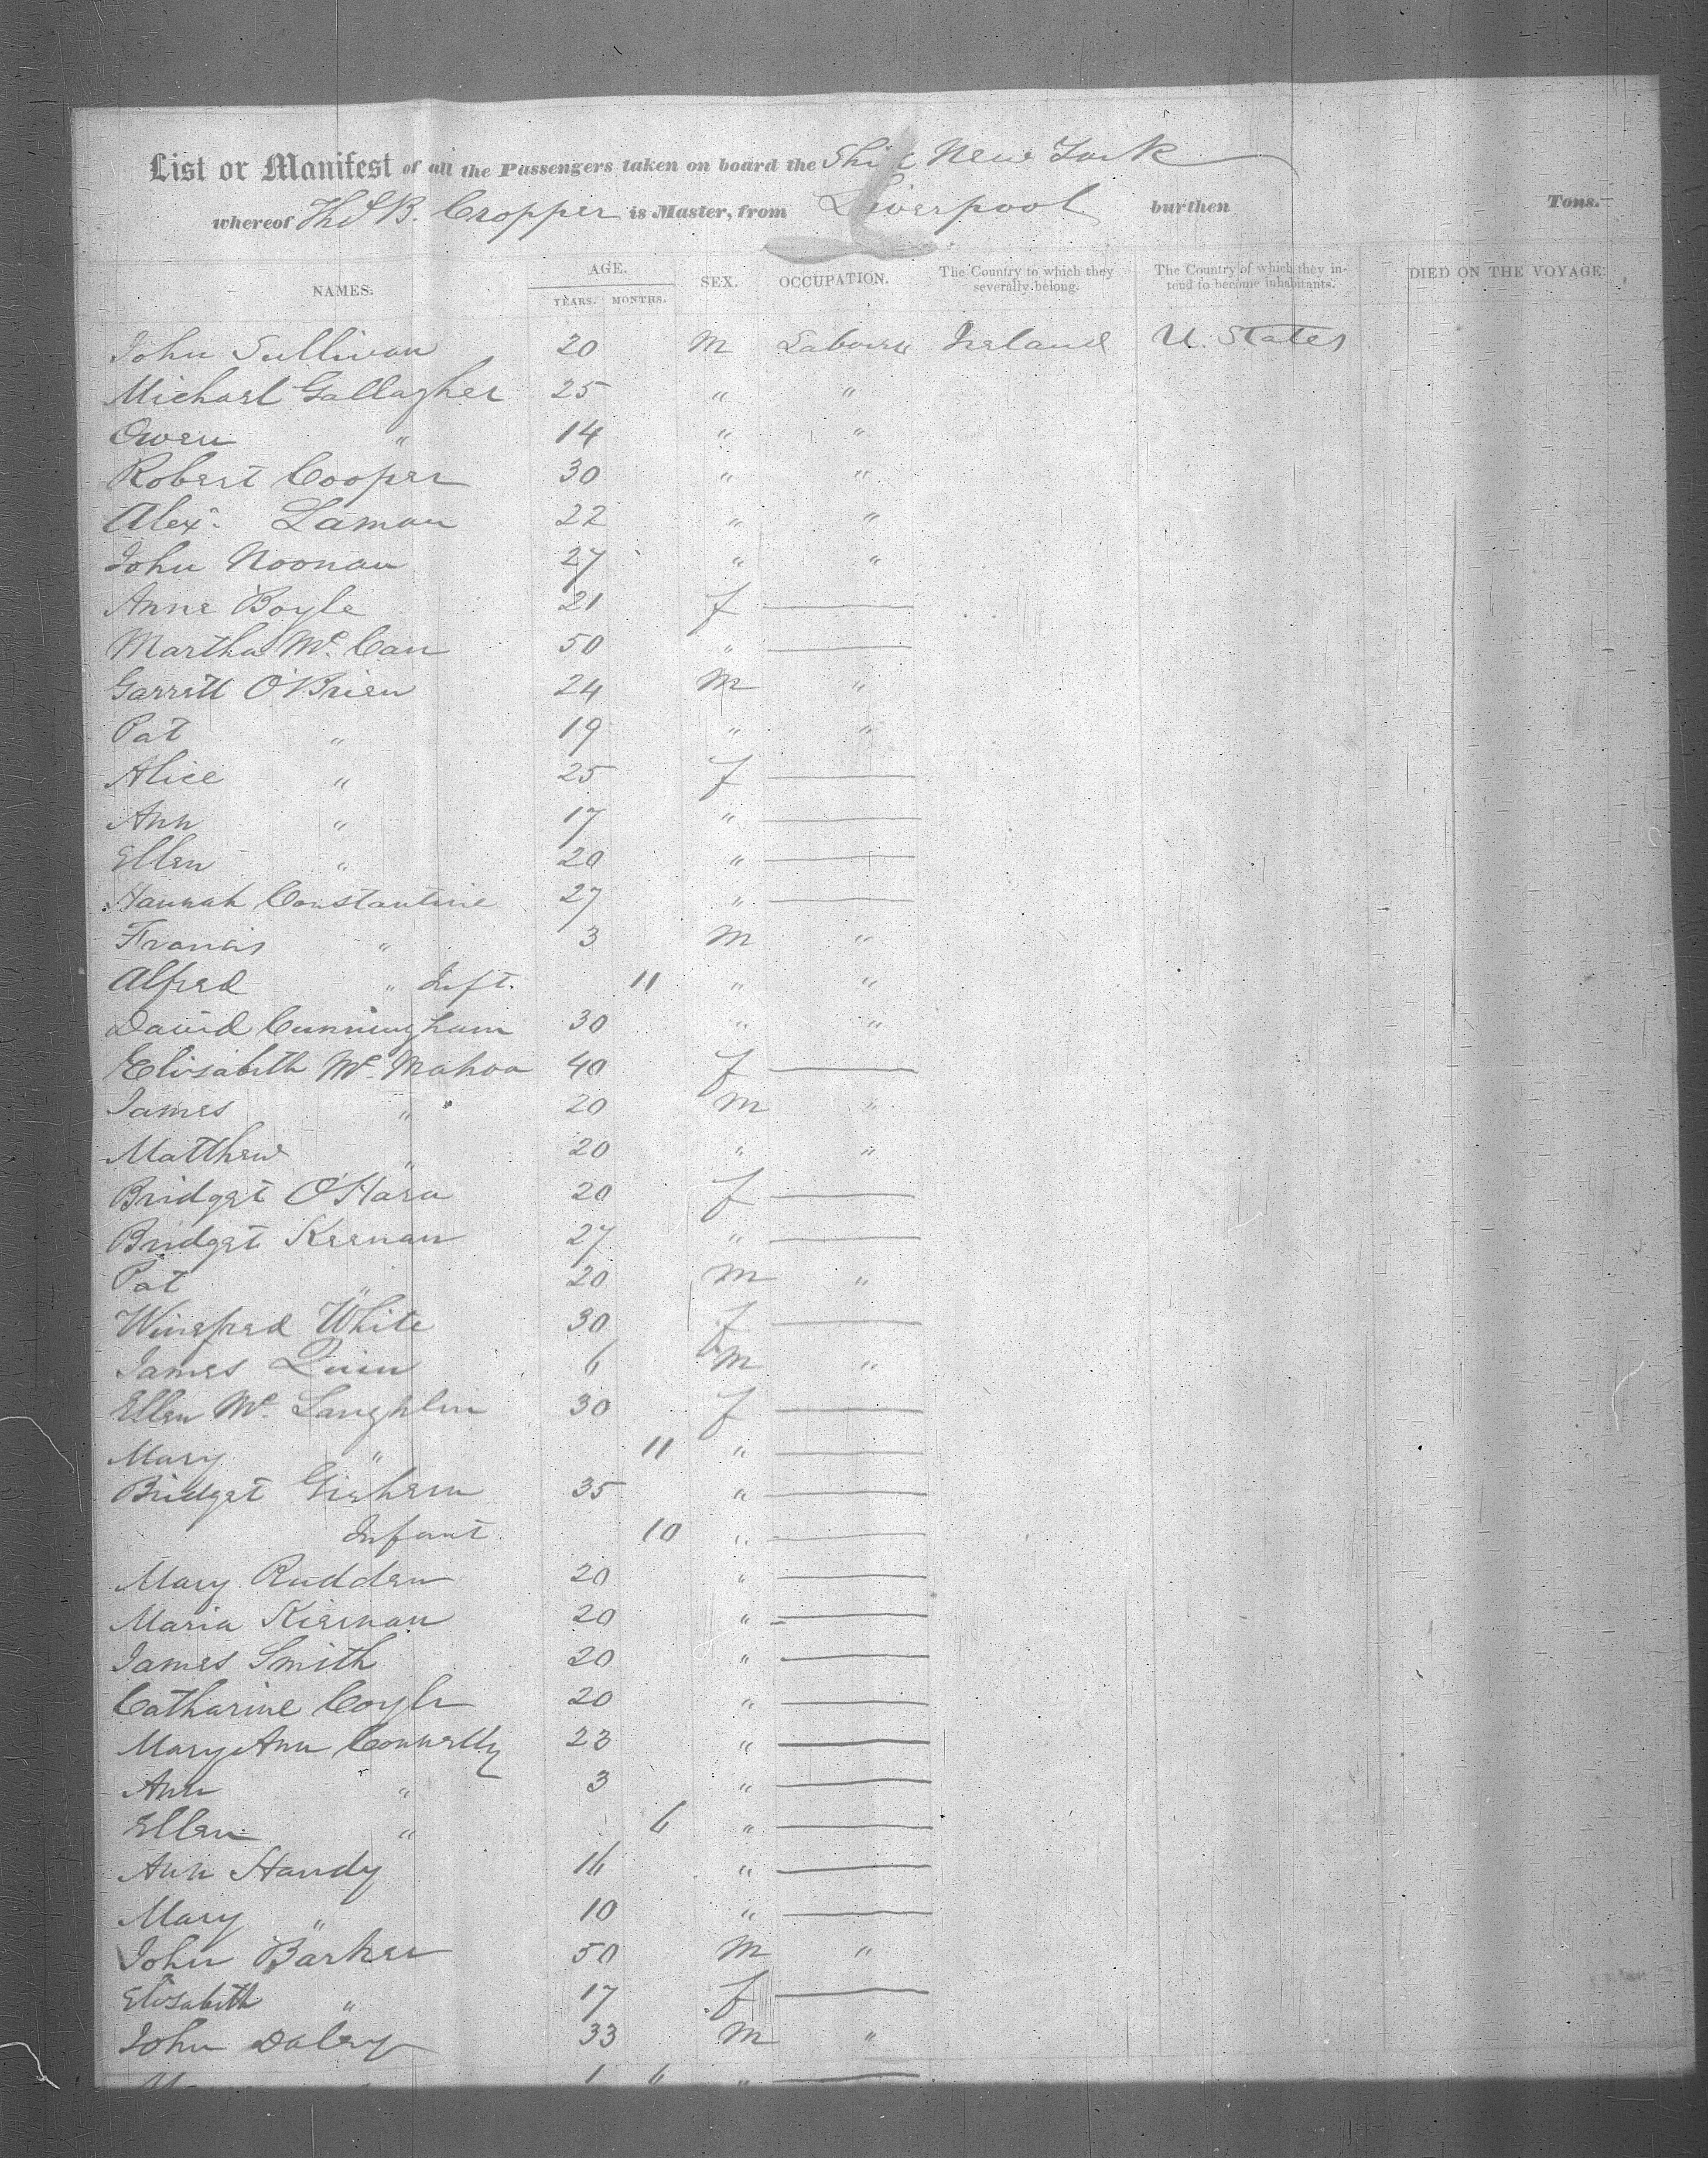 List or Manifest of all the Passengers taken on board the Ship New York
whereof Thos B. Cropper is Master, from Liverpool burthen Tons.
NAMES. AGE. YEARS. MONTHS. SEX. OCCUPATION. The Country to which they severally belong. The Country of which they intend to become inhabitants. DIED ON THE VOYAGE.
John Sullivan 20 M Labourer Ireland U. States
Michael Gallagher 25 " "
Owen " 14 " "
Robert Cooper 30 " "
Alexr. Laman 22 " "
John Noonan 27 " "
Anne Boyle 21 f —
Martha Mc. Can 50 " —
Garrett O'Brien 24 M "
Pat " 19 " "
Alice " 25 f —
Ann " 17 " —
Ellen " 20 " —
Hannah Constantine 27 " —
Francis " 3 M "
Alfred " Inft. 11 " "
David Cunningham 30 " "
Elisabeth Mc. Mahon 40 f —
James " 20 M "
Matthew " 20 " "
Bridget O'Hara 20 f —
Bridget Keenan 27 " —
Pat " 20 M "
Winefred White 30 f —
James Quin 6 M "
Ellen Mc. Laughlin 30 f —
Mary " 11 " —
Bridget 35 " —
Infant 10 " —
Mary Rudden 20 " —
Maria Kiernan 20 " —
James Smith 20 " —
Catharine Coyle 20 " —
Mary Ann Connelly 23 " —
Ann " 3 " —
Ellen " 6 " —
Ann Handy 16 " —
Mary " 10 " —
John Barker 50 M "
Elisabeth " 17 f —
John Daley 33 M "
1 6 " —